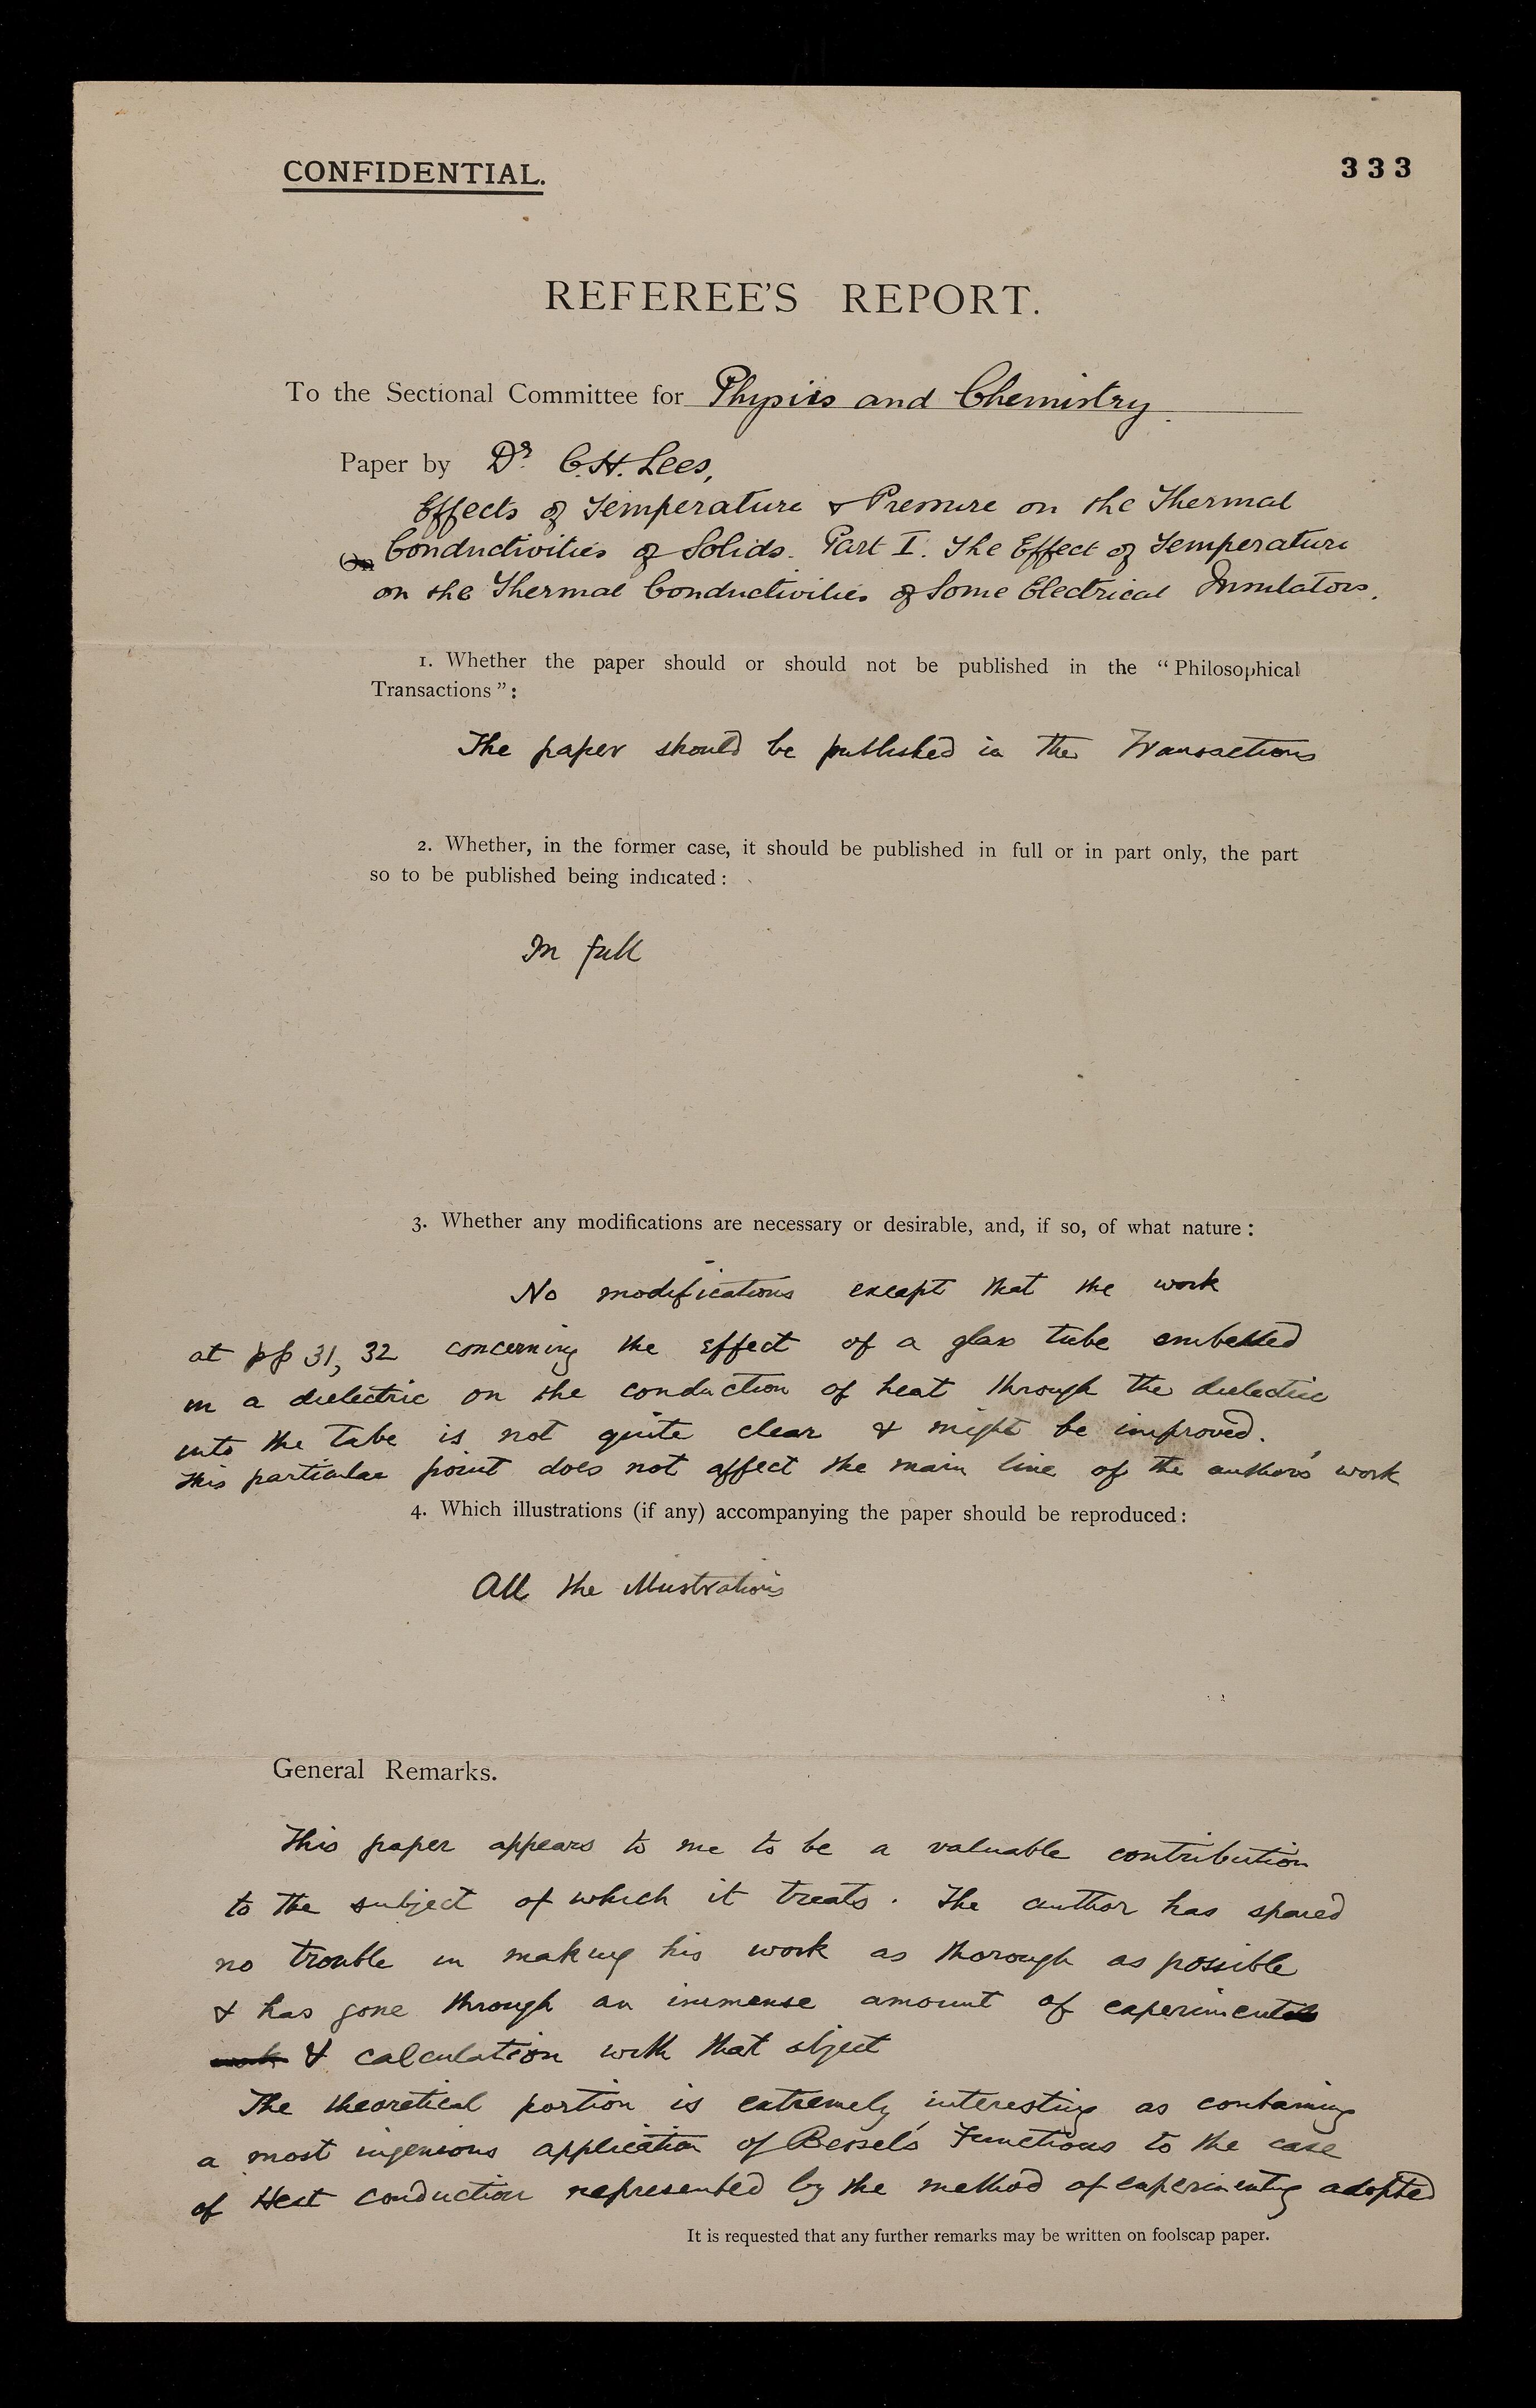 CONFIDENTIAL.
333
REFEREE'S REPORT.
To the Sectional Committee for Physics and Chemistry.
Paper by Dr. C.H. Lees,
Effects of Temperature & Pressure on the Thermal
Conductivities of Solids. Part I. The Effect of Temperature
on the Thermal Conductivities of Some Electrical Insulators.
1. Whether the paper should or should not be published in the "Philosophical
Transactions":
The paper should be published in the Transactions
2. Whether, in the former case, it should be published in full or in part only, the part
so to be published being indicated:
In full
3. Whether any modifications are necessary or desirable, and, if so, of what nature:
No modifications except that the work
at pp 31, 32 concerning the effect of a glass tube embedded
in a dielectric on the conduction of heat through the dielectric
into the tube is not quite clear & might be improved.
This particular point does not affect the main line of the author's work
4. Which illustrations (if any) accompanying the paper should be reproduced:
All the illustrations
General Remarks.
This paper appears to me to be a valuable contribution
to the subject of which it treats. The author has spared
no trouble in making his work as thorough as possible
& has gone through an immense amount of experiment
work & calculation with that object
The theoretical portion is extremely interesting as containing
a most ingenious application of Bessel's Functions to the case
of Heat conduction represented by the method of experimenting adopted
It is requested that any further remarks may be written on foolscap paper.